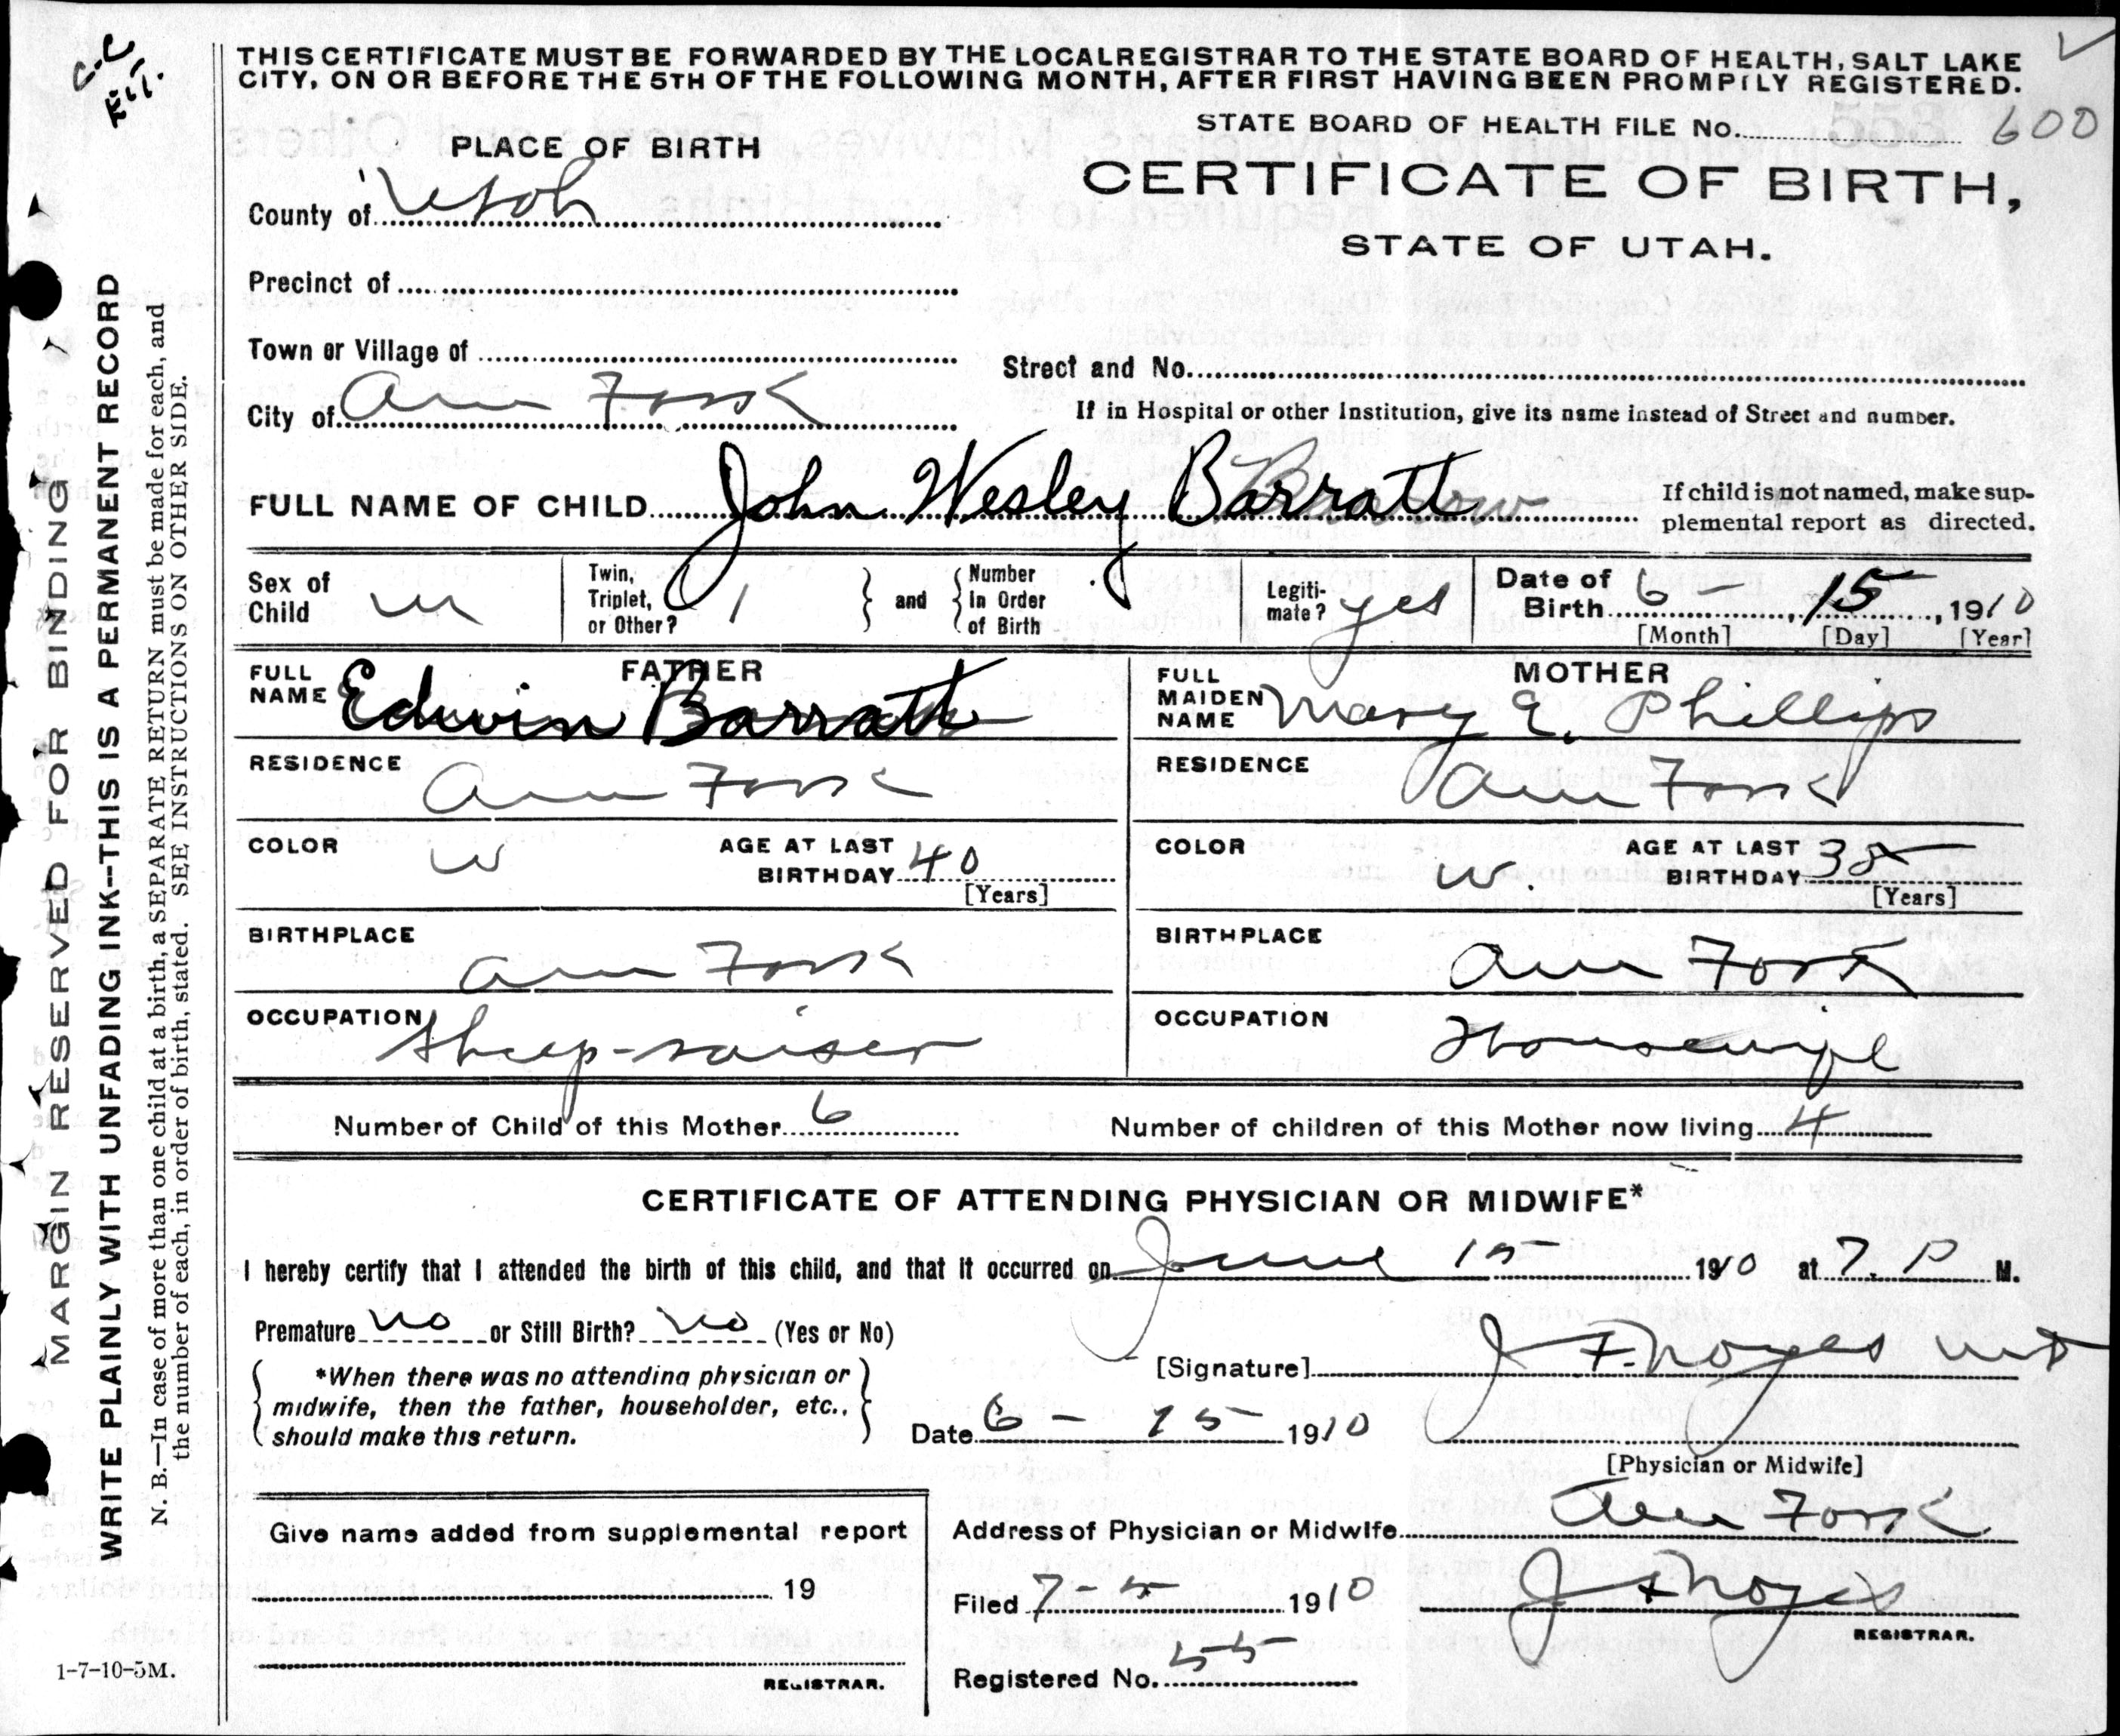 C.C
THIS CERTIFICATE MUST BE FORWARDED BY THE LOCAL REGISTRAR TO THE STATE BOARD OF HEALTH, SALT LAKE
CITY, ON OR BEFORE THE 5TH OF THE FOLLOWING MONTH, AFTER FIRST HAVING BEEN PROMPTLY REGISTERED.
STATE BOARD OF HEALTH FILE No. 600
PLACE OF BIRTH
CERTIFICATE OF BIRTH,
STATE OF UTAH.
County of Utah
Precinct of
Town or Village of
Street and No.
City of Am Fork
If in Hospital or other Institution, give its name instead of Street and number.
FULL NAME OF CHILD John Wesley Barratt
If child is not named, make sup-
plemental report as directed.
Sex of Child m
Twin, Triplet, or Other? 1 and Number In Order of Birth
Legiti-mate? yes
Date of Birth 6 - 15, 1910
[Month] [Day] [Year]
FATHER
FULL NAME Edwin Barratt
RESIDENCE Am Fork
COLOR w AGE AT LAST BIRTHDAY 40
[Years]
BIRTHPLACE Am Fork
OCCUPATION Sheep-raiser
MOTHER
FULL MAIDEN NAME Mary E. Phillips
RESIDENCE Am Fork
COLOR w. AGE AT LAST BIRTHDAY 38
[Years]
BIRTHPLACE Am Fork
OCCUPATION Housewife
Number of Child of this Mother 6 Number of children of this Mother now living 4
CERTIFICATE OF ATTENDING PHYSICIAN OR MIDWIFE*
I hereby certify that I attended the birth of this child, and that it occurred on June 15 1910 at 7. P M.
Premature no or Still Birth? no (Yes or No)
*When there was no attending physician or
midwife, then the father, householder, etc.,
should make this return.
[Signature] J F. Noyes MD
Date 6 - 15 1910
[Physician or Midwife]
Give name added from supplemental report
19
REGISTRAR.
Address of Physician or Midwife Am Fork
Filed 7-5 1910 J F Noyes
REGISTRAR.
Registered No. 55
1-7-10-5M.
MARGIN RESERVED FOR BINDING
WRITE PLAINLY WITH UNFADING INK--THIS IS A PERMANENT RECORD
N. B.—In case of more than one child at a birth, a SEPARATE RETURN must be made for each, and
the number of each, in order of birth, stated. SEE INSTRUCTIONS ON OTHER SIDE.